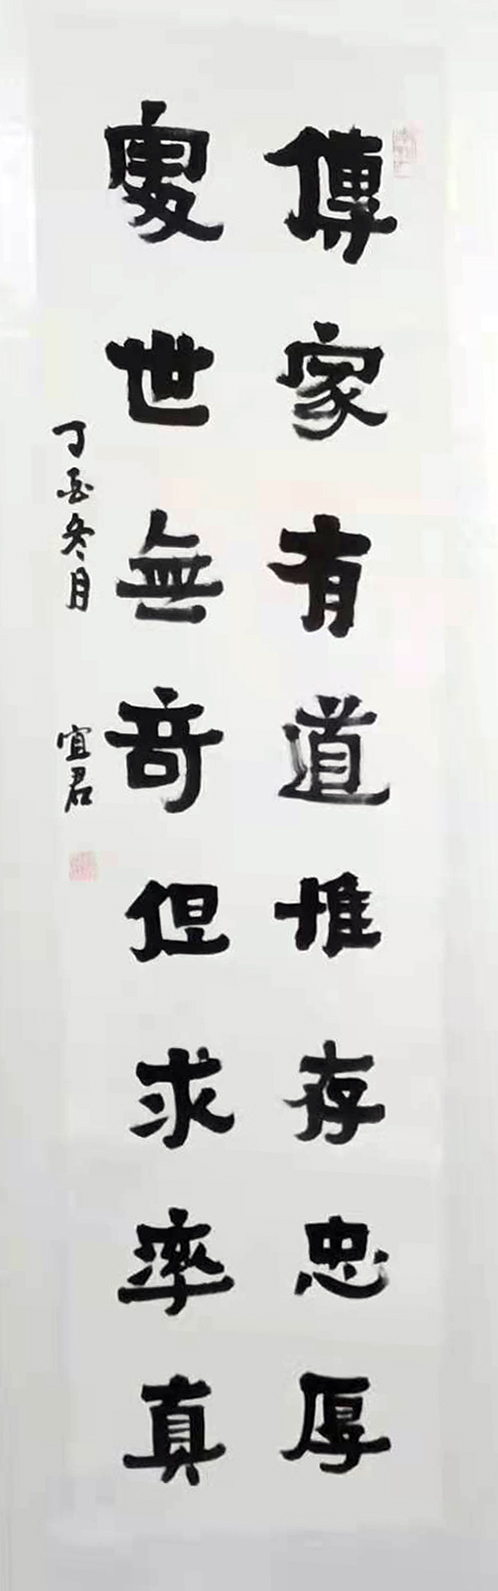 傳家有道惟存忠厚
處世無奇但求率真
丁酉冬月
宜君